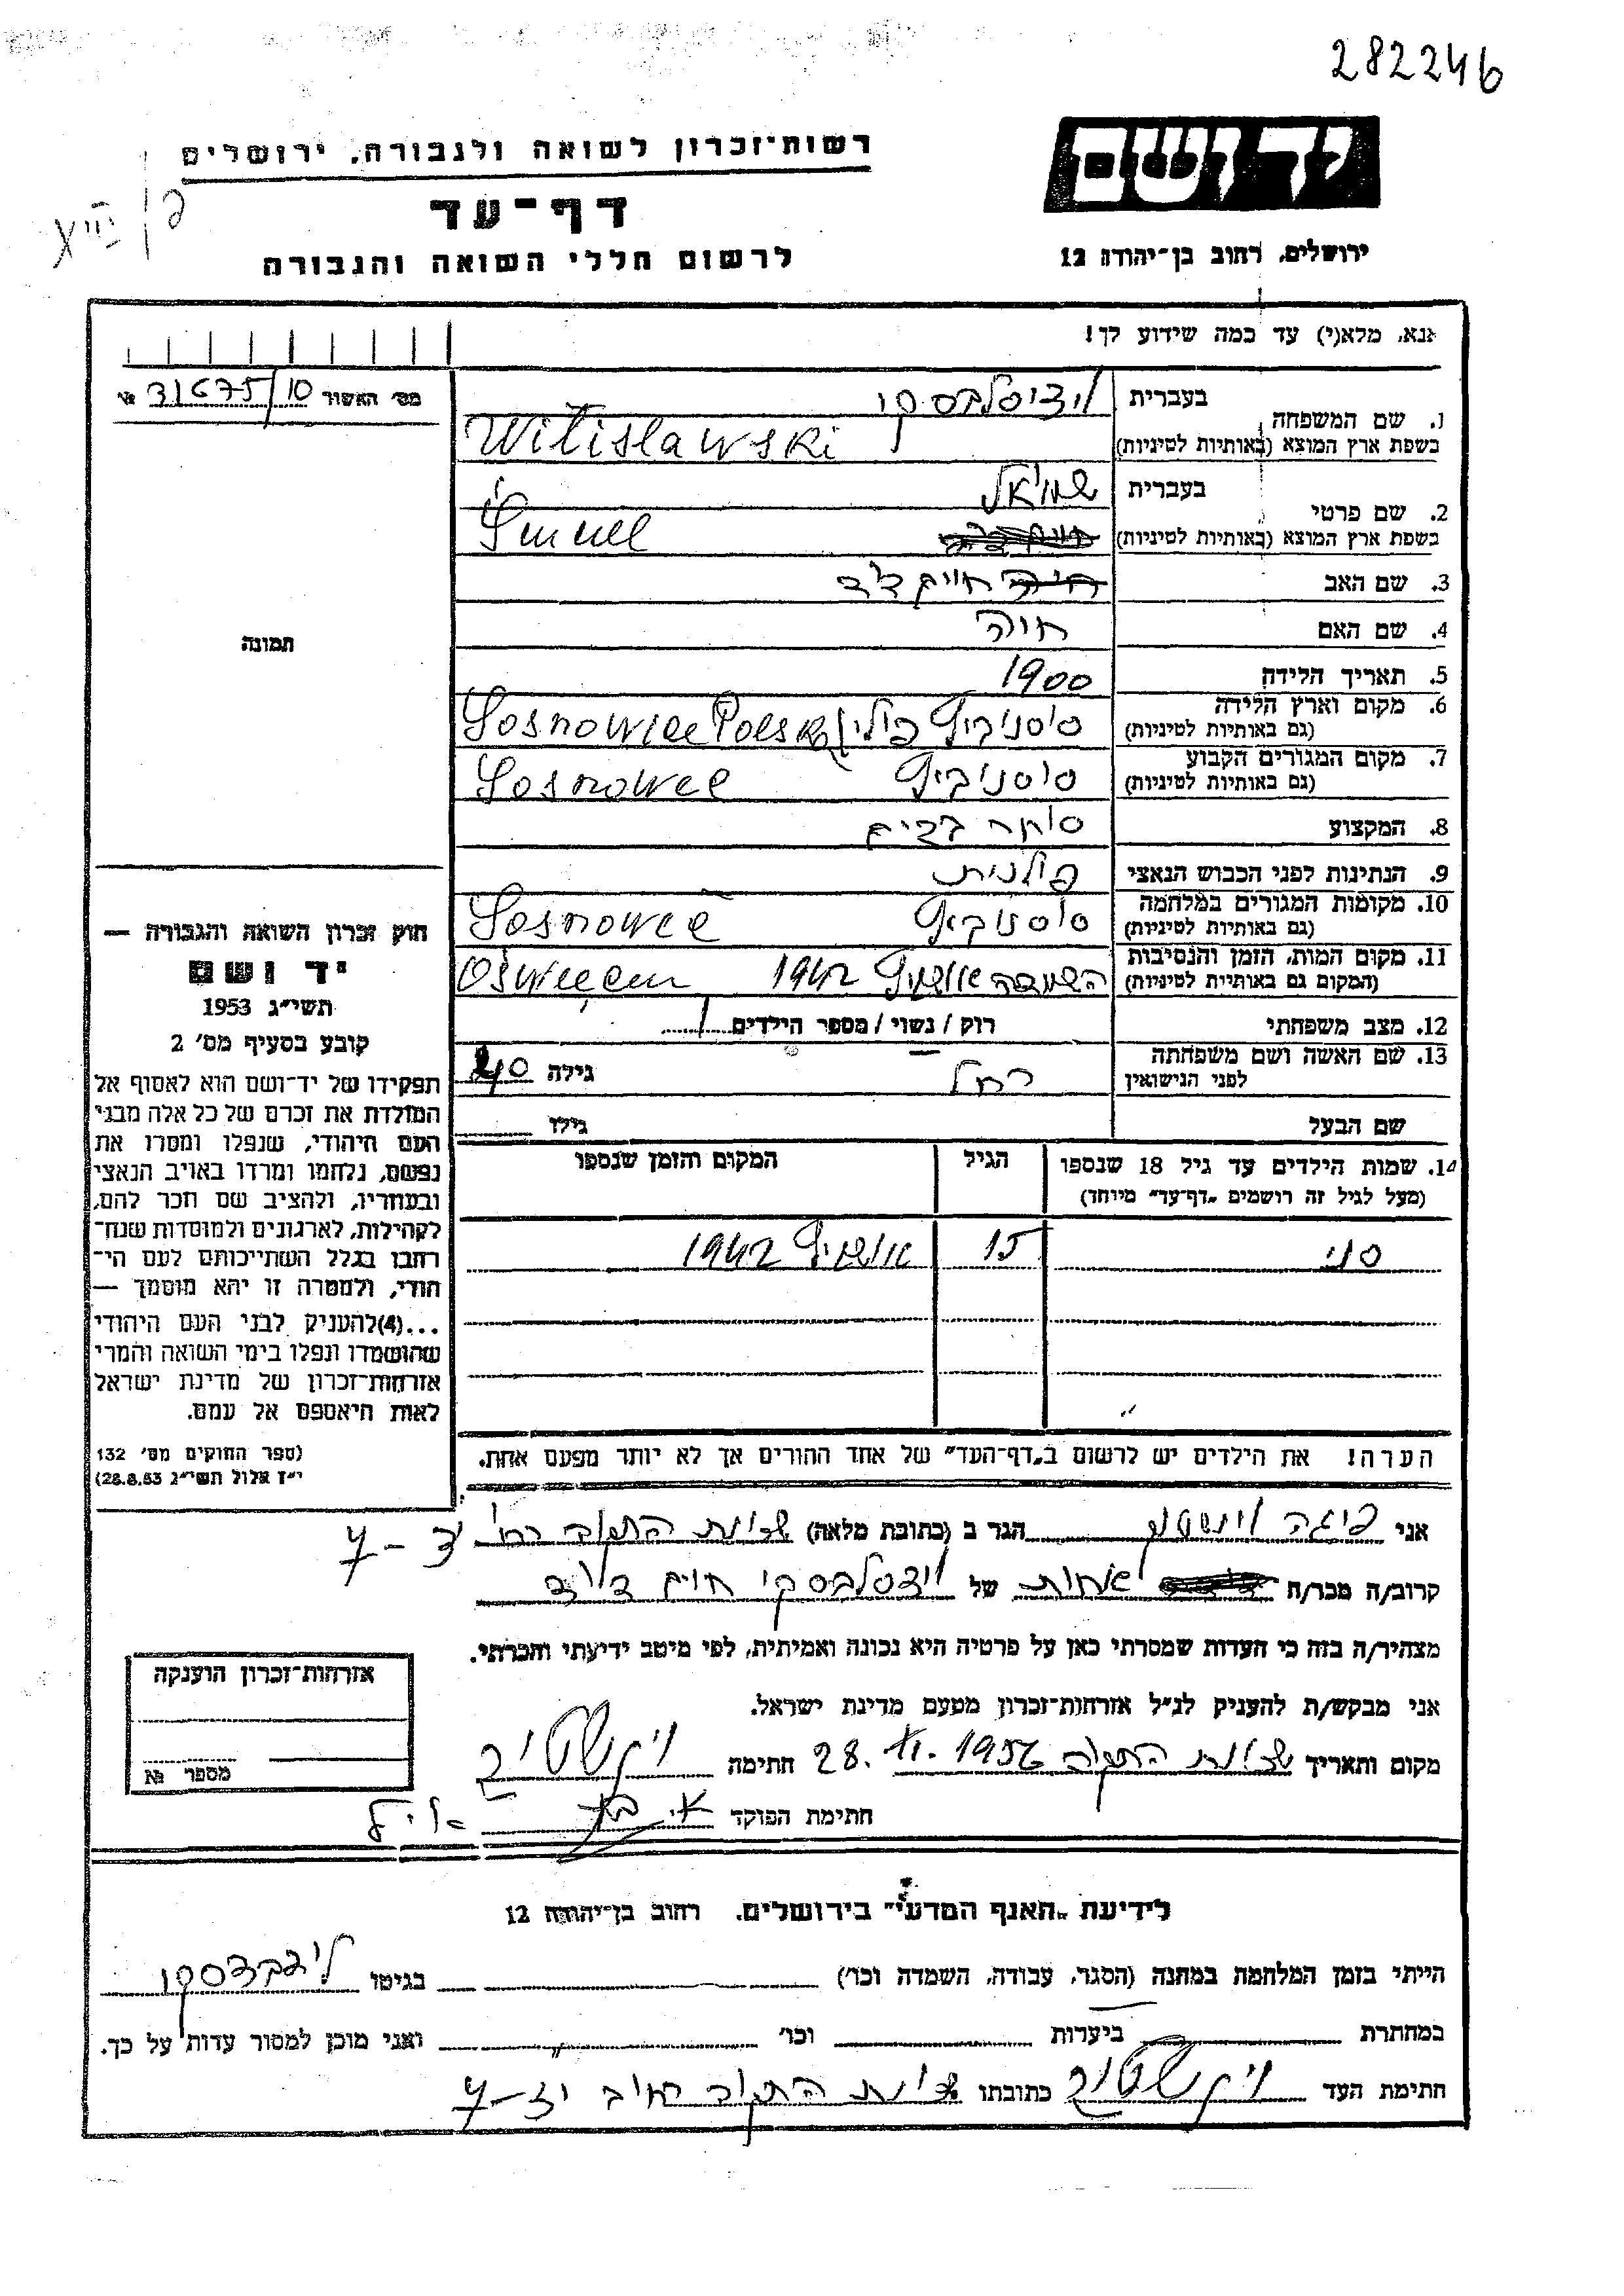 282246
יד ושם
רשות־זכרון לשואה ולגבורה, ירושלים
דף־עד
לרשום חללי השואה והגבורה
ירושלים, רחוב בן־יהודה 12
אנא, מלא(י) עד כמה שידוע לך!
מס׳ האשור 31675/10 №
1. שם המשפחה בעברית ויציסלבסקי
בשפת ארץ המוצא (באותיות לטיניות) Witislawski
2. שם פרטי בעברית שמואל
בשפת ארץ המוצא (באותיות לטיניות) Smuel
3. שם האב חיים דוד
4. שם האם חיה
5. תאריך הלידה 1900
6. מקום וארץ הלידה (גם באותיות לטיניות) סוסנוביץ פולין Sosnowiec Polska
7. מקום המגורים הקבוע (גם באותיות לטיניות) סוסנוביץ Sosnowec
8. המקצוע סוחר בדים
9. הנתינות לפני הכבוש הנאצי פולנית
10. מקומות המגורים במלחמה (גם באותיות לטיניות) סוסנוביץ Sosnowec
11. מקום המות, הזמן והנסיבות (המקום גם באותיית לטיניות) השמדה אושויץ 1942 Oświęcem
12. מצב משפחתי רוק / נשוי / מספר הילדים 1
13. שם האשה ושם משפחתה לפני הנישואין רחל גילה 40
שם הבעל גילו
תמונה
14. שמות הילדים עד גיל 18 שנספו (מעל לגיל זה רושמים „דף־עד״ מיוחד) הגיל המקום והזמן שנספו
15 אושויץ 1942
הערה! את הילדים יש לרשום ב„דף־העד״ של אחד ההורים אך לא יותר מפעם אחת.
חוק זכרון השואה והגבורה —
יד ושם
תשי״ג 1953
קובע בסעיף מס׳ 2
תפקידו של יד־ושם הוא לאסוף אל
המולדת את זכרם של כל אלה מבני
העם היהודי, שנפלו ומסרו את
נפשם, נלחמו ומרדו באויב הנאצי
ובעוזריו, ולהציב שם וזכר להם,
לקהילות, לארגונים ולמוסדות שנח־
רבו בגלל השתייכותם לעם הי־
הודי, ולמטרה זו יהא מוסמך —
...(4)להעניק לבני העם היהודי
שהושמדו ונפלו בימי השואה והמרי
אזרחות־זכרון של מדינת ישראל
לאות היאספם אל עמם.
(ספר החוקים מס׳ 132
י״ז אלול תשי״ג 28.8.53)
אני פיגה הגר ב (כתובת מלאה) שכונת התקוה רח׳
קרוב/ה מכר/ה אחות של ויצסלבסקי חיים דוד
מצהיר/ה בזה כי העדות שמסרתי כאן על פרטיה היא נכונה ואמיתית, לפי מיטב ידיעתי והכרתי.
אני מבקש/ת להעניק לנ״ל אזרחות־זכרון מטעם מדינת ישראל.
מקום ותאריך שכונת התקוה 28. II. 1956 חתימה
חתימת הפוקד
אזרחות־זכרון הוענקה
מספר №
לידיעת „האגף המדעי״ בירושלים. רחוב בן־יהודה 12
הייתי בזמן המלחמה במחנה (הסגר, עבודה, השמדה וכו׳) בגיטו
במחתרת ביערות וכו׳ ואני מוכן למסור עדות על כך.
חתימת העד כתובתו שכונת התקוה רחוב